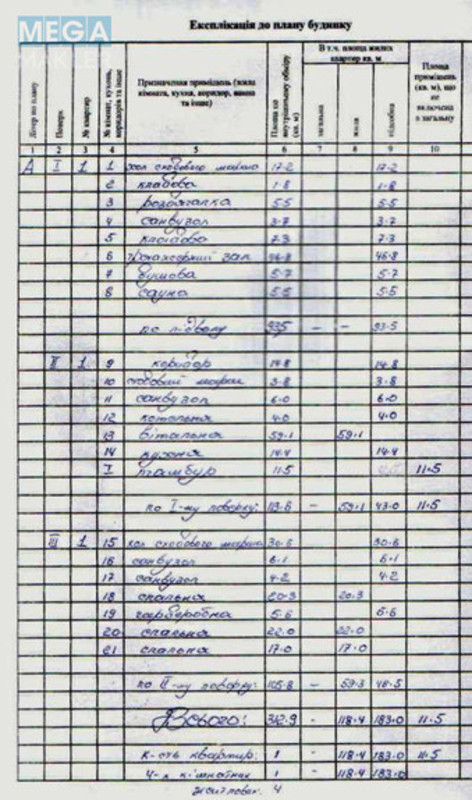 MEGA
МАКЛЕР
Експлікація до плану будинку
Літер по плану | Поверх | № квартир | № кімнат, кухонь, коридорів та інше | Призначення приміщень (жила кімната, кухня, коридор, ванна та інше) | Площа по внутрішньому обміру (кв. м) | В т.ч. площа жилих квартир кв. м | Площа приміщень (кв. м), що не включена в загальну
загальна | жила | підсобна
1 2 3 4 5 6 7 8 9 10
А I 1 1 хол сходового маршу 17.2 17.2
2 кладова 1.8 1.8
3 роздягалка 5.5 5.5
4 санвузол 3.7 3.7
5 кладова 7.3 7.3
6 тренажерний зал 46.8 46.8
7 душова 5.7 5.7
8 сауна 5.5 5.5
по підвалу 93.5 - - 93.5
II 1 9 коридор 14.8 14.8
10 сходовий марш 3.8 3.8
11 санвузол 6.0 6.0
12 котельня 4.0 4.0
13 вітальня 59.1 59.1
14 кухня 14.4 14.4
I тамбур 11.5 11.5
по I-му поверху: 113.6 - 59.1 43.0 11.5
III 1 15 хол сходового маршу 30.6 30.6
16 санвузол 6.1 6.1
17 санвузол 4.2 4.2
18 спальня 20.3 20.3
19 гардеробна 5.6 5.6
20 спальня 22.0 22.0
21 спальня 17.0 17.0
по II-му поверху: 105.8 - 59.3 46.5
Всього: 312.9 - 118.4 183.0 11.5
к-сть квартир: 1 118.4 183.0 11.5
4-х кімнатних 1 118.4 183.0
4